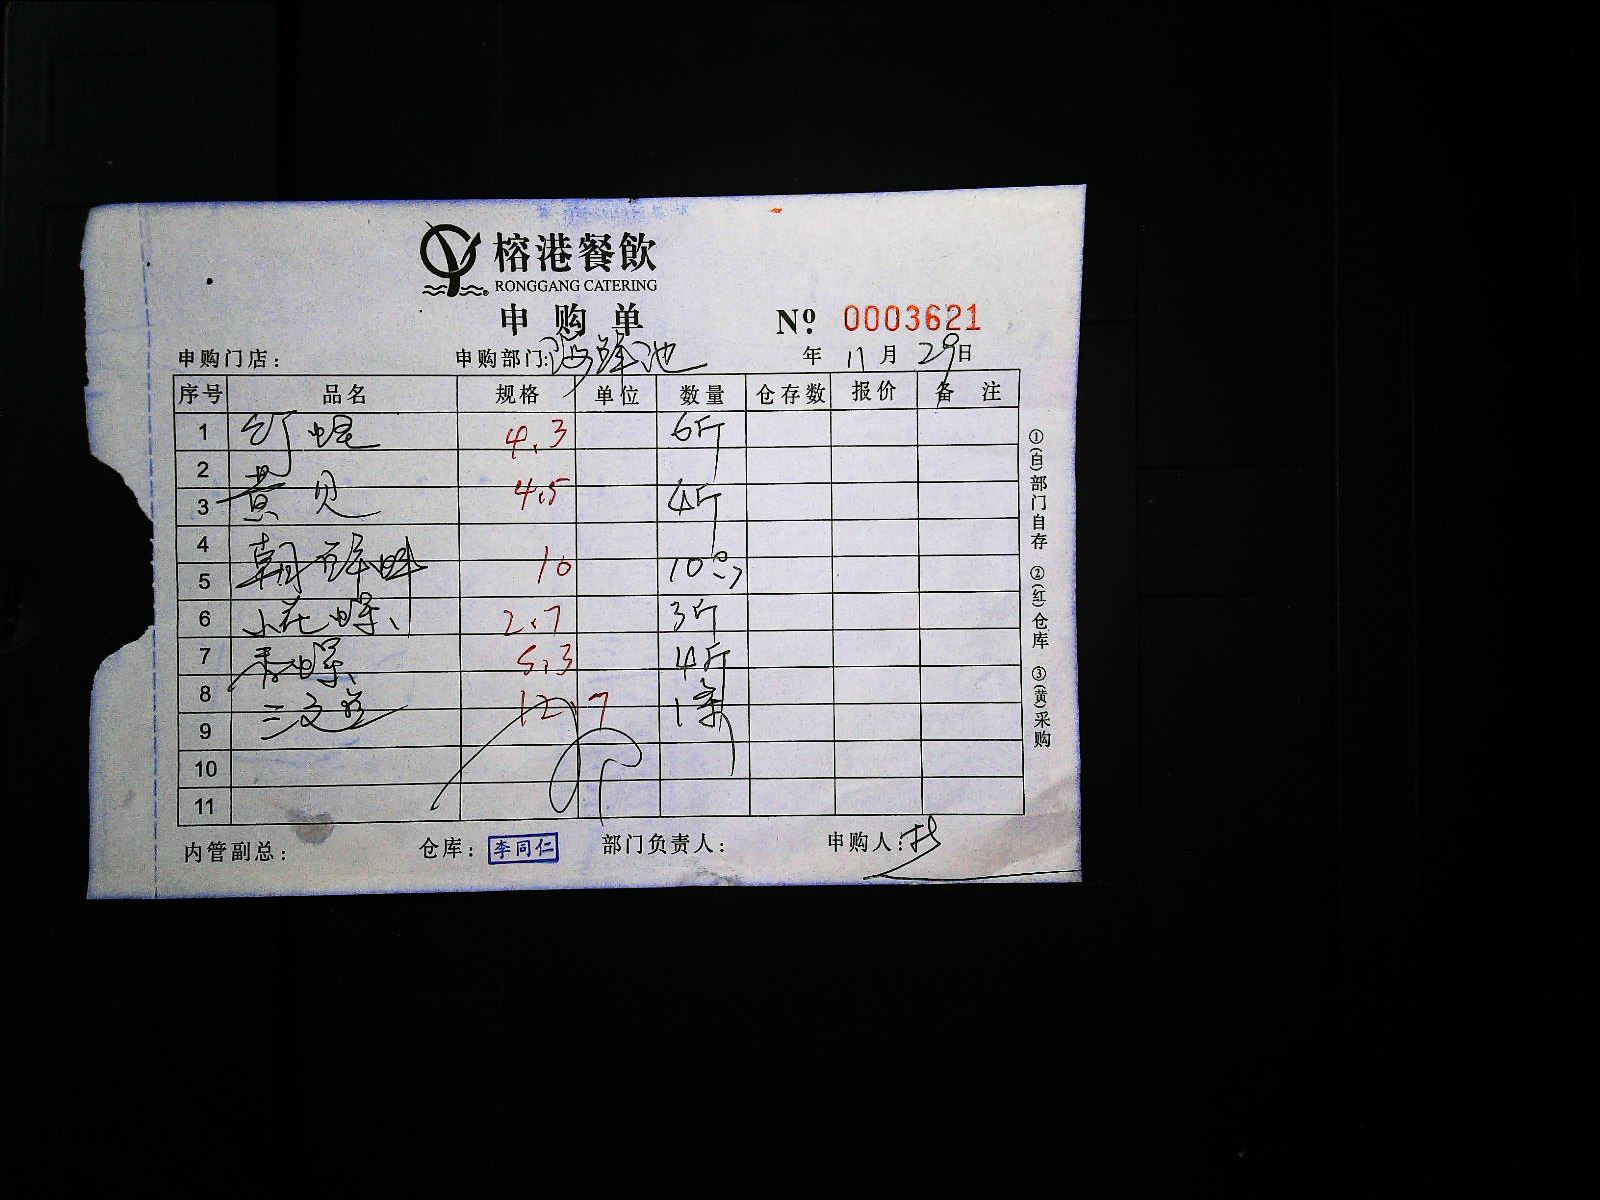 榕港餐飲
RONGGANG CATERING
申购单 Nº 0003621
申购门店： 申购部门：海鲜池 年 11 月 29日
序号 品名 规格 单位 数量 仓存数 报价 备 注
1 红蜆 4.3 6斤
2
3 黄贝 4.5 4斤
4
5 朝鲜蚌 10 10只
6 小花螺 2.7 3斤
7 香螺 5.3 4斤
8 三文鱼 12.7 1条
9
10
11
内管副总： 仓库：李同仁 部门负责人： 申购人：
①(自)部门自存 ②(红)仓库 ③(黄)采购